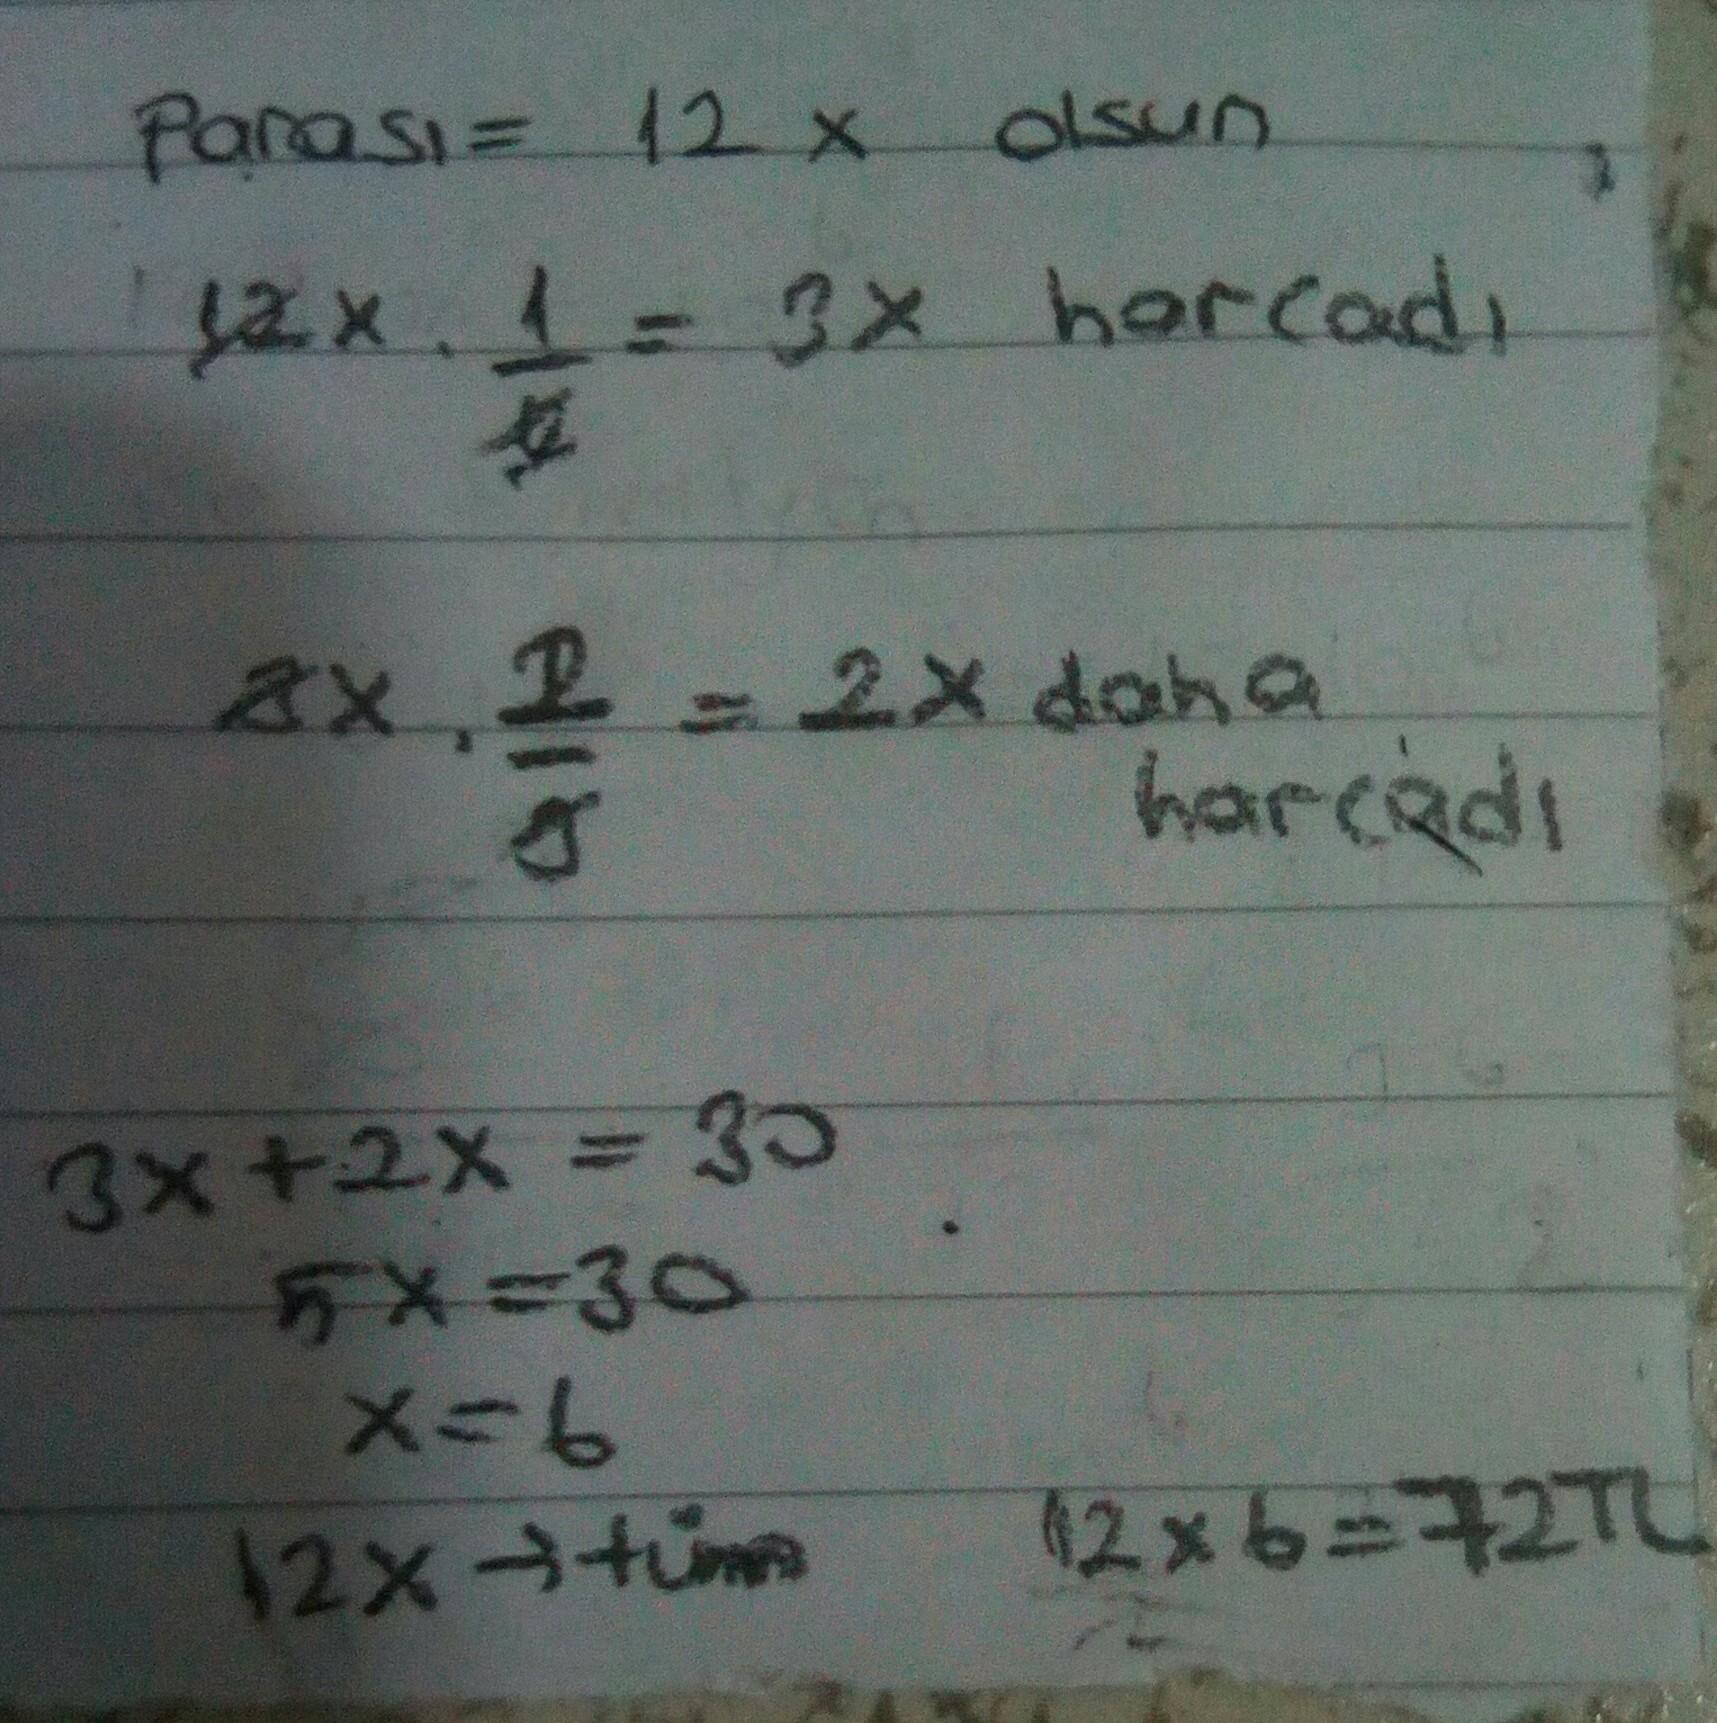 Parası = 12 x olsun
12x . 1/4 = 3x harcadı
3x . 2/3 = 2x daha
harcadı
3x + 2x = 30
5x = 30
x = 6
12x → tüm 12 x 6 = 72 TL